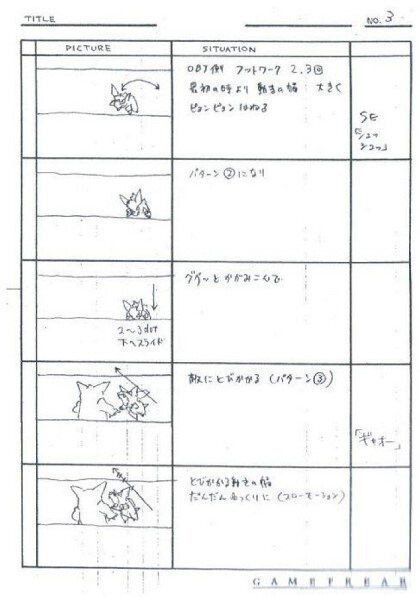 TITLE
NO. 3
PICTURE
SITUATION
OBJ側 フットワーク 2,3回
最初の時より 動きの幅 大きく
ピョンピョン はねる
SE
「シュッ
シュッ」
パターン②になり
ググーッと かがみこんで
2〜3dot
下へスライド
敵にとびかかる (パターン③)
「ギャオー」
とびかかる動きの幅
だんだん ゆっくりに (スローモーション)
GAMEFREAK